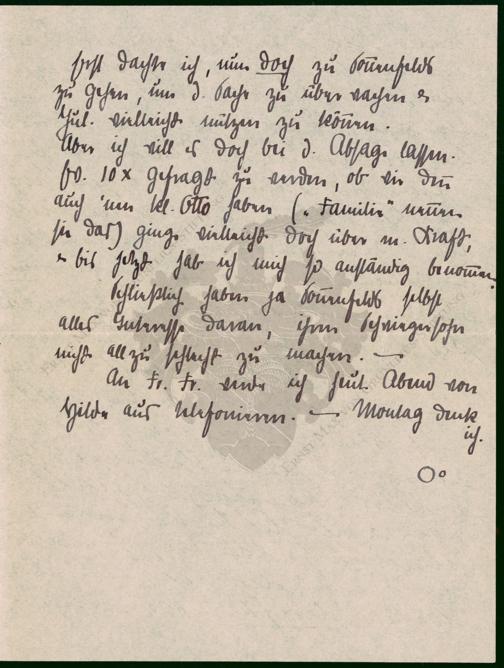 Erst dachte ich, nun doch zu Sonnenfelds
zu gehen, um d. Sache zu überwachen &
Jul. vielleicht nützen zu können.
Aber ich will es doch bei d. Absage lassen.
10 x gefragt zu werden, ob wir denn
auch 'nen kl. Otto haben („Familie" nennen
sie das) ginge vielleicht doch über m. Kraft,
& bis jetzt hab ich mich so anständig benommen.
Schließlich haben ja Sonnenfelds selbst
alles Interesse daran, ihren Schwiegersohn
nicht allzu schlecht zu machen. —
An Fr. Fr. werde ich heut. Abend von
Hilde aus telefonieren. — Montag denk
ich.